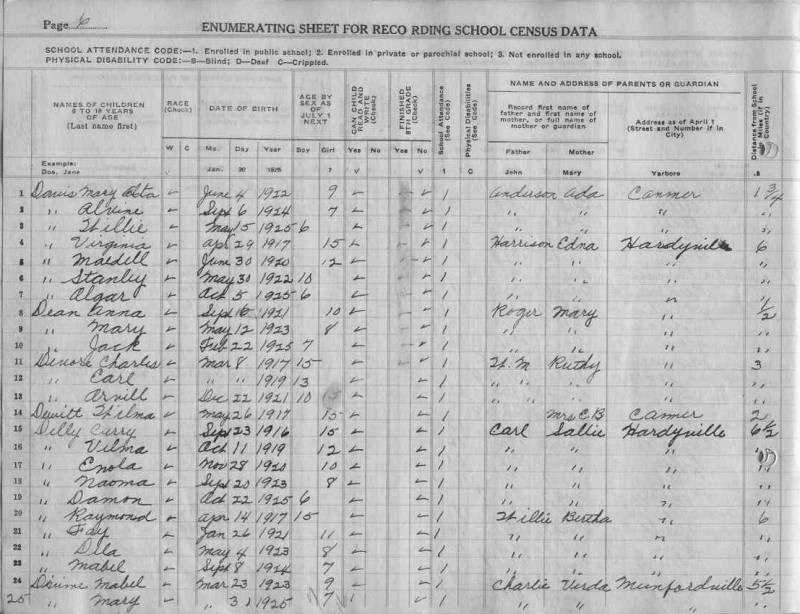 Page 6
ENUMERATING SHEET FOR RECO RDING SCHOOL CENSUS DATA
SCHOOL ATTENDANCE CODE:—1. Enrolled in public school; 2. Enrolled in private or parochial school; 3. Not enrolled in any school.
PHYSICAL DISABILITY CODE:—B—Blind; D—Deaf C—Crippled.
NAMES OF CHILDREN 6 TO 18 YEARS OF AGE (Last name first) RACE (Check) DATE OF BIRTH AGE BY SEX AS OF JULY 1 NEXT CAN CHILD READ AND WRITE (Check) FINISHED 8TH GRADE (Check) School Attendance (See Code) Physical Disabilities (See Code) NAME AND ADDRESS OF PARENTS OR GUARDIAN Distance from School in Miles (if in Country)
Record first name of father and first name of mother, or full name of mother or guardian Address as of April 1 (Street and Number if in City)
W C Mo. Day Year Boy Girl Yes No Yes No Father Mother
Example:
Doe, Jane √ Jan. 20 1925 7 √ √ 1 C John Mary Yarboro .8
1 Davis Mary Alta ✓ June 4 1922 9 ✓ ✓ 1 Anderson Ada Canmer 1 3/4
2 " Alvine ✓ Sept 6 1924 7 ✓ ✓ 1 " " " "
3 " Willie ✓ May 15 1925 6 ✓ ✓ 1 " " " "
4 " Virginia ✓ Apr 29 1917 15 ✓ ✓ 1 Harrison Edna Hardyville 6
5 " Maedell ✓ June 30 1920 12 ✓ ✓ 1 " " " "
6 " Stanley ✓ May 30 1922 10 ✓ ✓ 1 " " " "
7 " Algar ✓ Oct 5 1925 6 ✓ ✓ 1 " " " "
8 Dean Anna ✓ Sept 16 1921 10 ✓ ✓ 1 Roger Mary " 1/2
9 " Mary ✓ May 12 1923 8 ✓ ✓ 1 " " " "
10 " Jack ✓ Feb 22 1925 7 ✓ ✓ 1 " " " "
11 Denore Charlis ✓ Mar 8 1917 15 ✓ ✓ 1 W. M Ruthy " 3
12 " Earl ✓ " " 1919 13 ✓ ✓ 1 " " " "
13 " Arvill ✓ Dec 22 1921 10 ✓ ✓ 1 " " " "
14 Dewitt Thelma ✓ May 26 1917 15 ✓ ✓ 1 Mrs C B Canmer 2
15 Dilly Curry ✓ Sept 23 1916 15 ✓ ✓ 1 Carl Sallie Hardyville 6 1/2
16 " Vilma ✓ Oct 11 1919 12 ✓ ✓ 1 " " " "
17 " Enola ✓ Nov 28 1920 10 ✓ ✓ 1 " " " "
18 " Naoma ✓ Sept 20 1923 8 ✓ ✓ 1 " " " "
19 " Damon ✓ Oct 22 1925 6 ✓ ✓ 1 " " " "
20 " Raymond ✓ Apr 14 1917 15 ✓ ✓ 1 Willie Bertha " 6
21 " Fay ✓ Jan 26 1921 11 ✓ ✓ 1 " " " "
22 " Dila ✓ May 4 1923 8 ✓ ✓ 1 " " " "
23 " Mabel ✓ Sept 8 1924 7 ✓ ✓ 1 " " " "
24 Mabel ✓ Mar 23 1923 9 ✓ ✓ 1 Charlie Verda Munfordville 5 1/2
25 " Mary ✓ " 31 1925 7 ✓ ✓ 1 " " " "